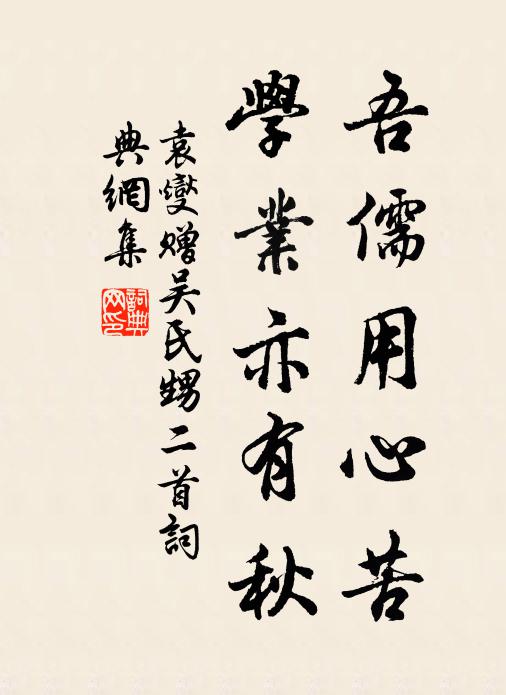 吾儒用心苦
學業亦有秋
袁燮贈吴氏甥二首詞
典網集
詞典網印